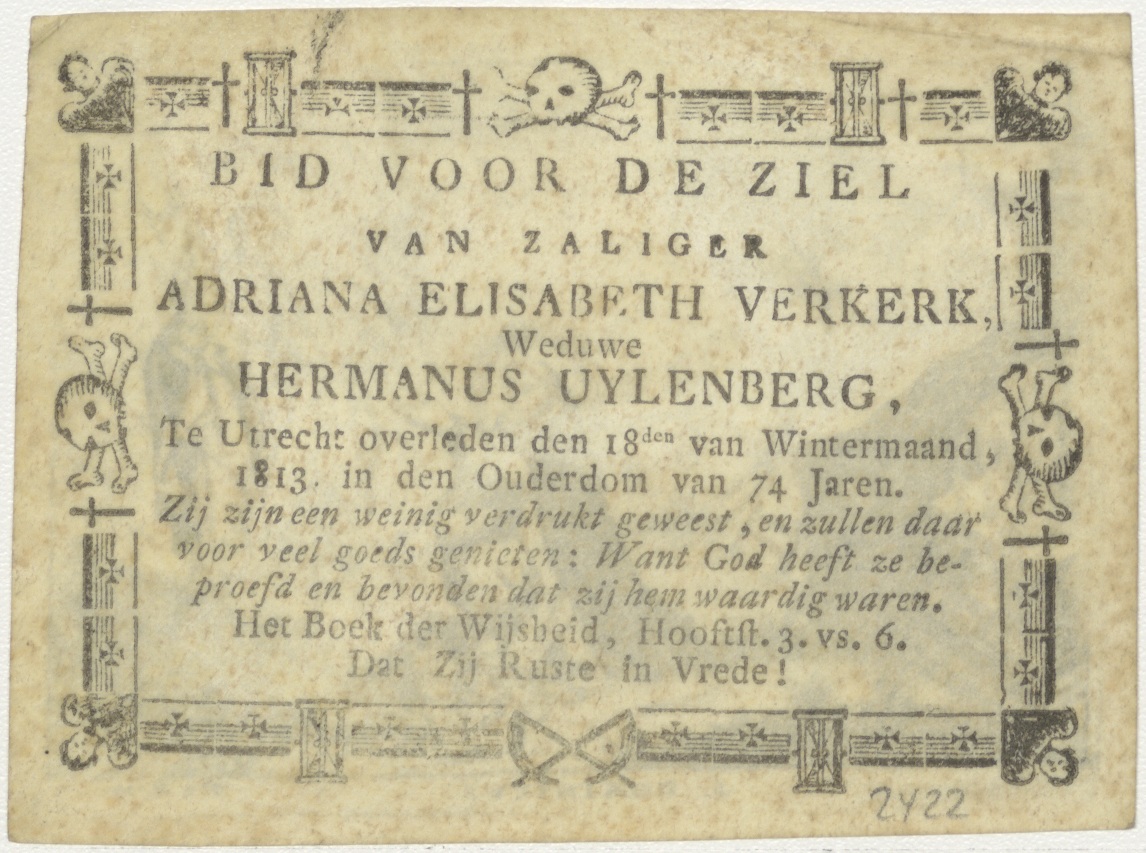 BID VOOR DE ZIEL
VAN ZALIGER
ADRIANA ELISABETH VERKERK,
Weduwe
HERMANUS UYLENBERG,
Te Utrecht overleden den 18den van Wintermaand,
1813. in den Ouderdom van 74 Jaren.
Zij zijn een weinig verdrukt geweest, en zullen daar
voor veel goeds genieten: Want God heeft ze be-
proefd en bevonden dat zij hem waardig waren.
Het Boek der Wijsheid, Hooftſt. 3. vs. 6.
Dat Zij Ruste in Vrede!
2422